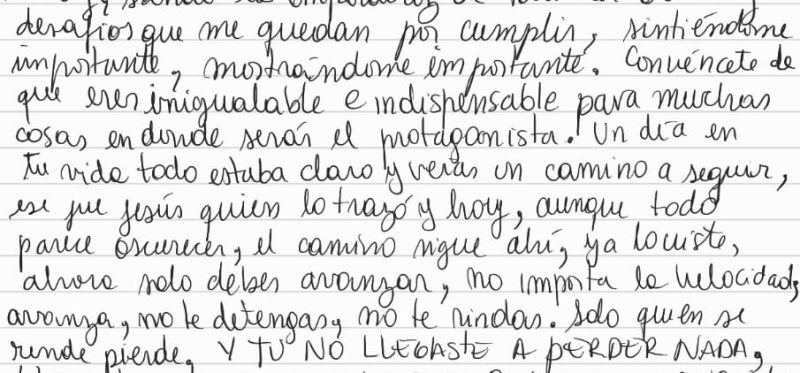 desafios que me quedan por cumplir, sintiéndome
importante, mostrándome importante. Convéncete de
que eres inigualable e indispensable para muchas
cosas en donde serás el protagonista. Un día en
tu vida todo estaba claro y verás un camino a seguir,
ese fue Jesús quien lo trazó y hoy, aunque todo
parece oscurecer, el camino sigue ahí, ya lo viste,
ahora solo debes avanzar, no importa la velocidad,
avanza, no te detengas, no te rindas. Solo quien se
rinde pierde. Y TU NO LLEGASTE A PERDER NADA,